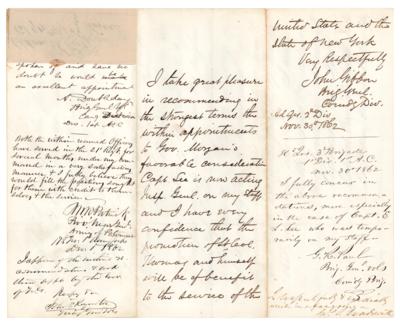 spoken of and have no
doubt he would make
an excellent appointment
A. Doubleday
Brig Genl Vols
Comg Division
Dec 1st
Both the within named Officers
have served in the 21st Regt for
several months under my com-
mand in a very satisfactory
manner & I fully believe they
would fill the positions sought
for them with credit to them-
selves & the service
Army of Potomac
Dec 1 1862
I take great pleasure
in recommending in
the strongest terms the
within appointments
to Gov. Morgan's
favorable consideration
Capt Lee is now acting
Insp Genl. on my staff
and I have every
confidence that the
promotion of Lt. Col.
Thomas and himself
will be of benefit
to the service of the
United States and the
State of New York
Very Respectfully
John Gibbon
Brig. Genl.
Comdg Div.
Hd Qrs. 2d Div
Nov. 30th 1862
Hd Qrs. 3d Brigade
1st Div. 1st A.C.
Nov. 30th 1862
I fully concur in
the above recommen-
dations, more especially
in the case of Capt. E.
L. Lee who was tempo-
rarily on my staff.
G. R. Paul
Brig. Genl Vols
Comdg Brig.